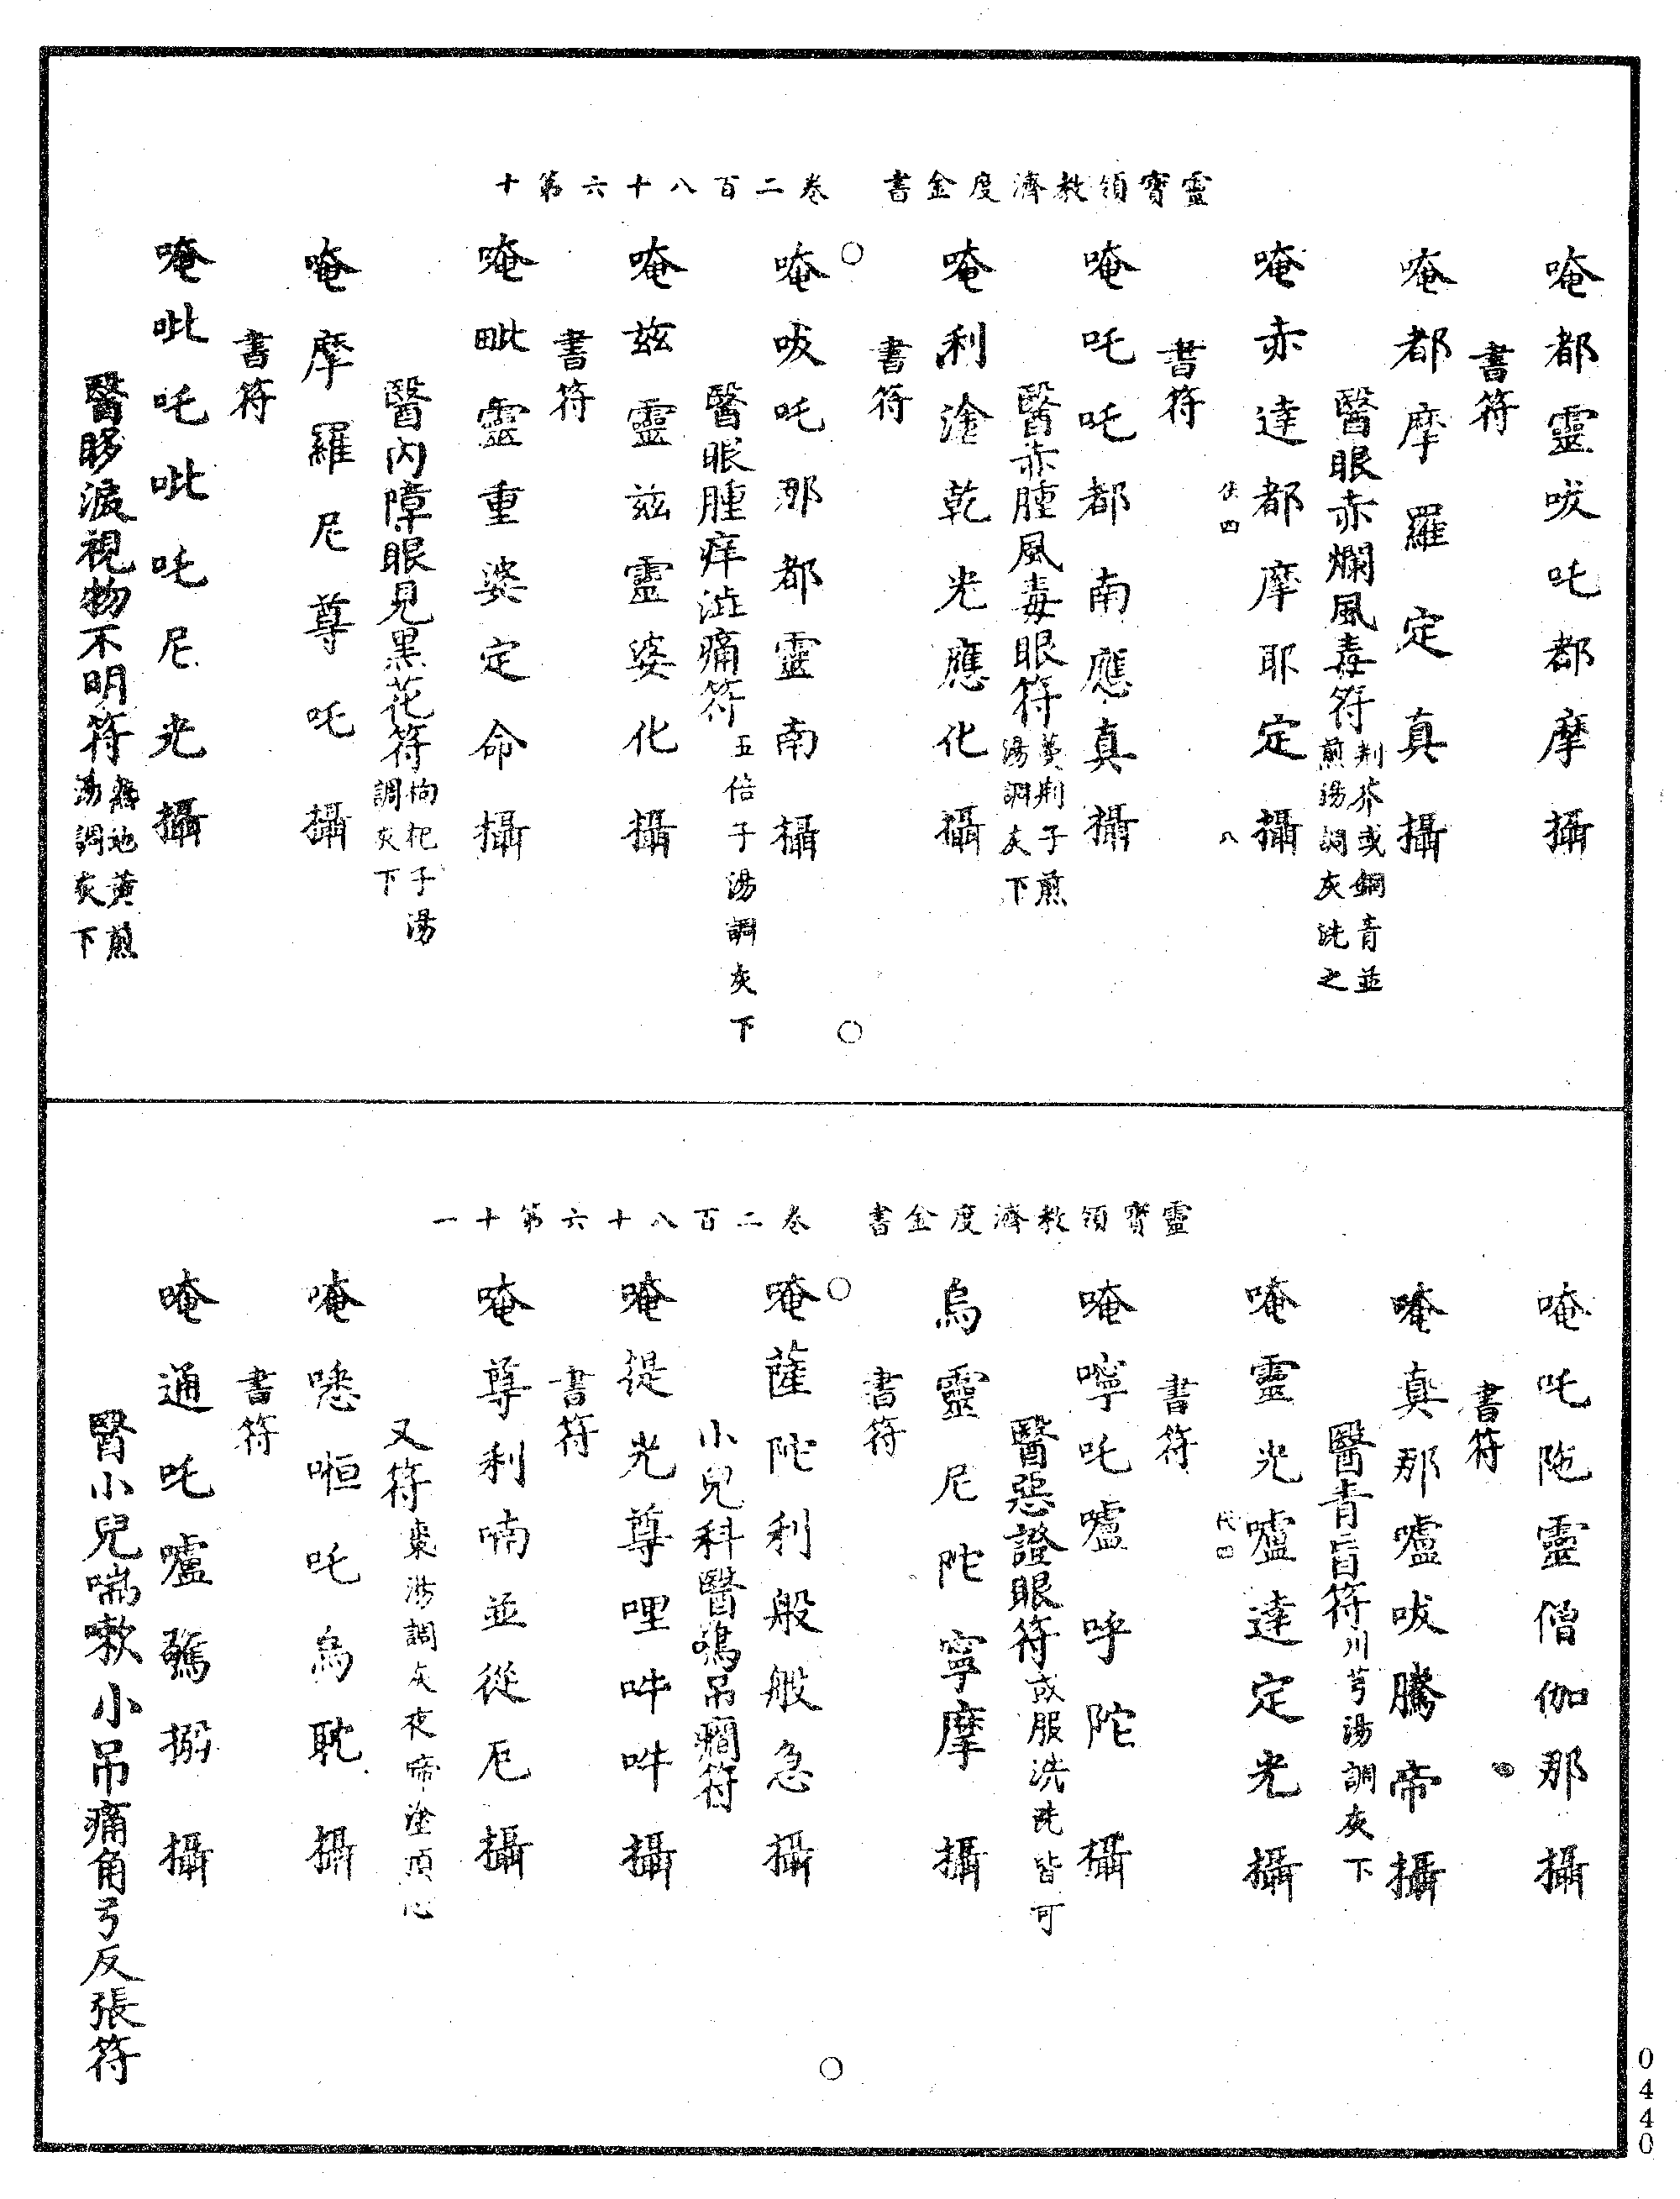 靈寶領教濟度金書　卷二百八十六第十
唵都靈㕹吒都摩攝
書符
唵都摩羅定真攝
醫眼赤爛風毒符荆芥或銅青並
煎湯調灰洗之
唵赤達都摩耶定攝
四　八
書符
唵吒吒都南應真攝
醫赤腫風毒眼符蔓荆子煎
湯調灰下
唵利塗乾光應化攝
書符
唵㕹吒那都靈南攝
醫眼腫痒澁痛符五倍子湯調灰下
唵兹靈兹靈婆化攝
書符
唵毗靈重婆定命攝
醫內障眼見黑花符枸杞子湯
調灰下
唵摩羅尼尊吒攝
書符
唵吡吒吡吒尼光攝
醫眵淚視物不明符地黃煎
湯調灰下
靈寶領教濟度金書　卷二百八十六第十一
唵吒陁靈僧伽那攝
書符
唵真那嚧㕹騰帝攝
醫青盲符川芎湯調灰下
唵靈光嚧達定光攝
四
書符
唵嚀吒嚧呼陀攝
醫惡證眼符或服洗皆可
烏靈尼陀寧摩攝
書符
唵薩陀利般般急攝
小兒科醫鳴吊癎符
唵從光尊哩吽吽攝
書符
唵尊利喃並從厄攝
又符棗湯調灰夜啼塗頂心
唵㗭吒烏耽攝
書符
唵通吒嚧攝
醫小兒喘嗽小吊痛角弓反張符
0440